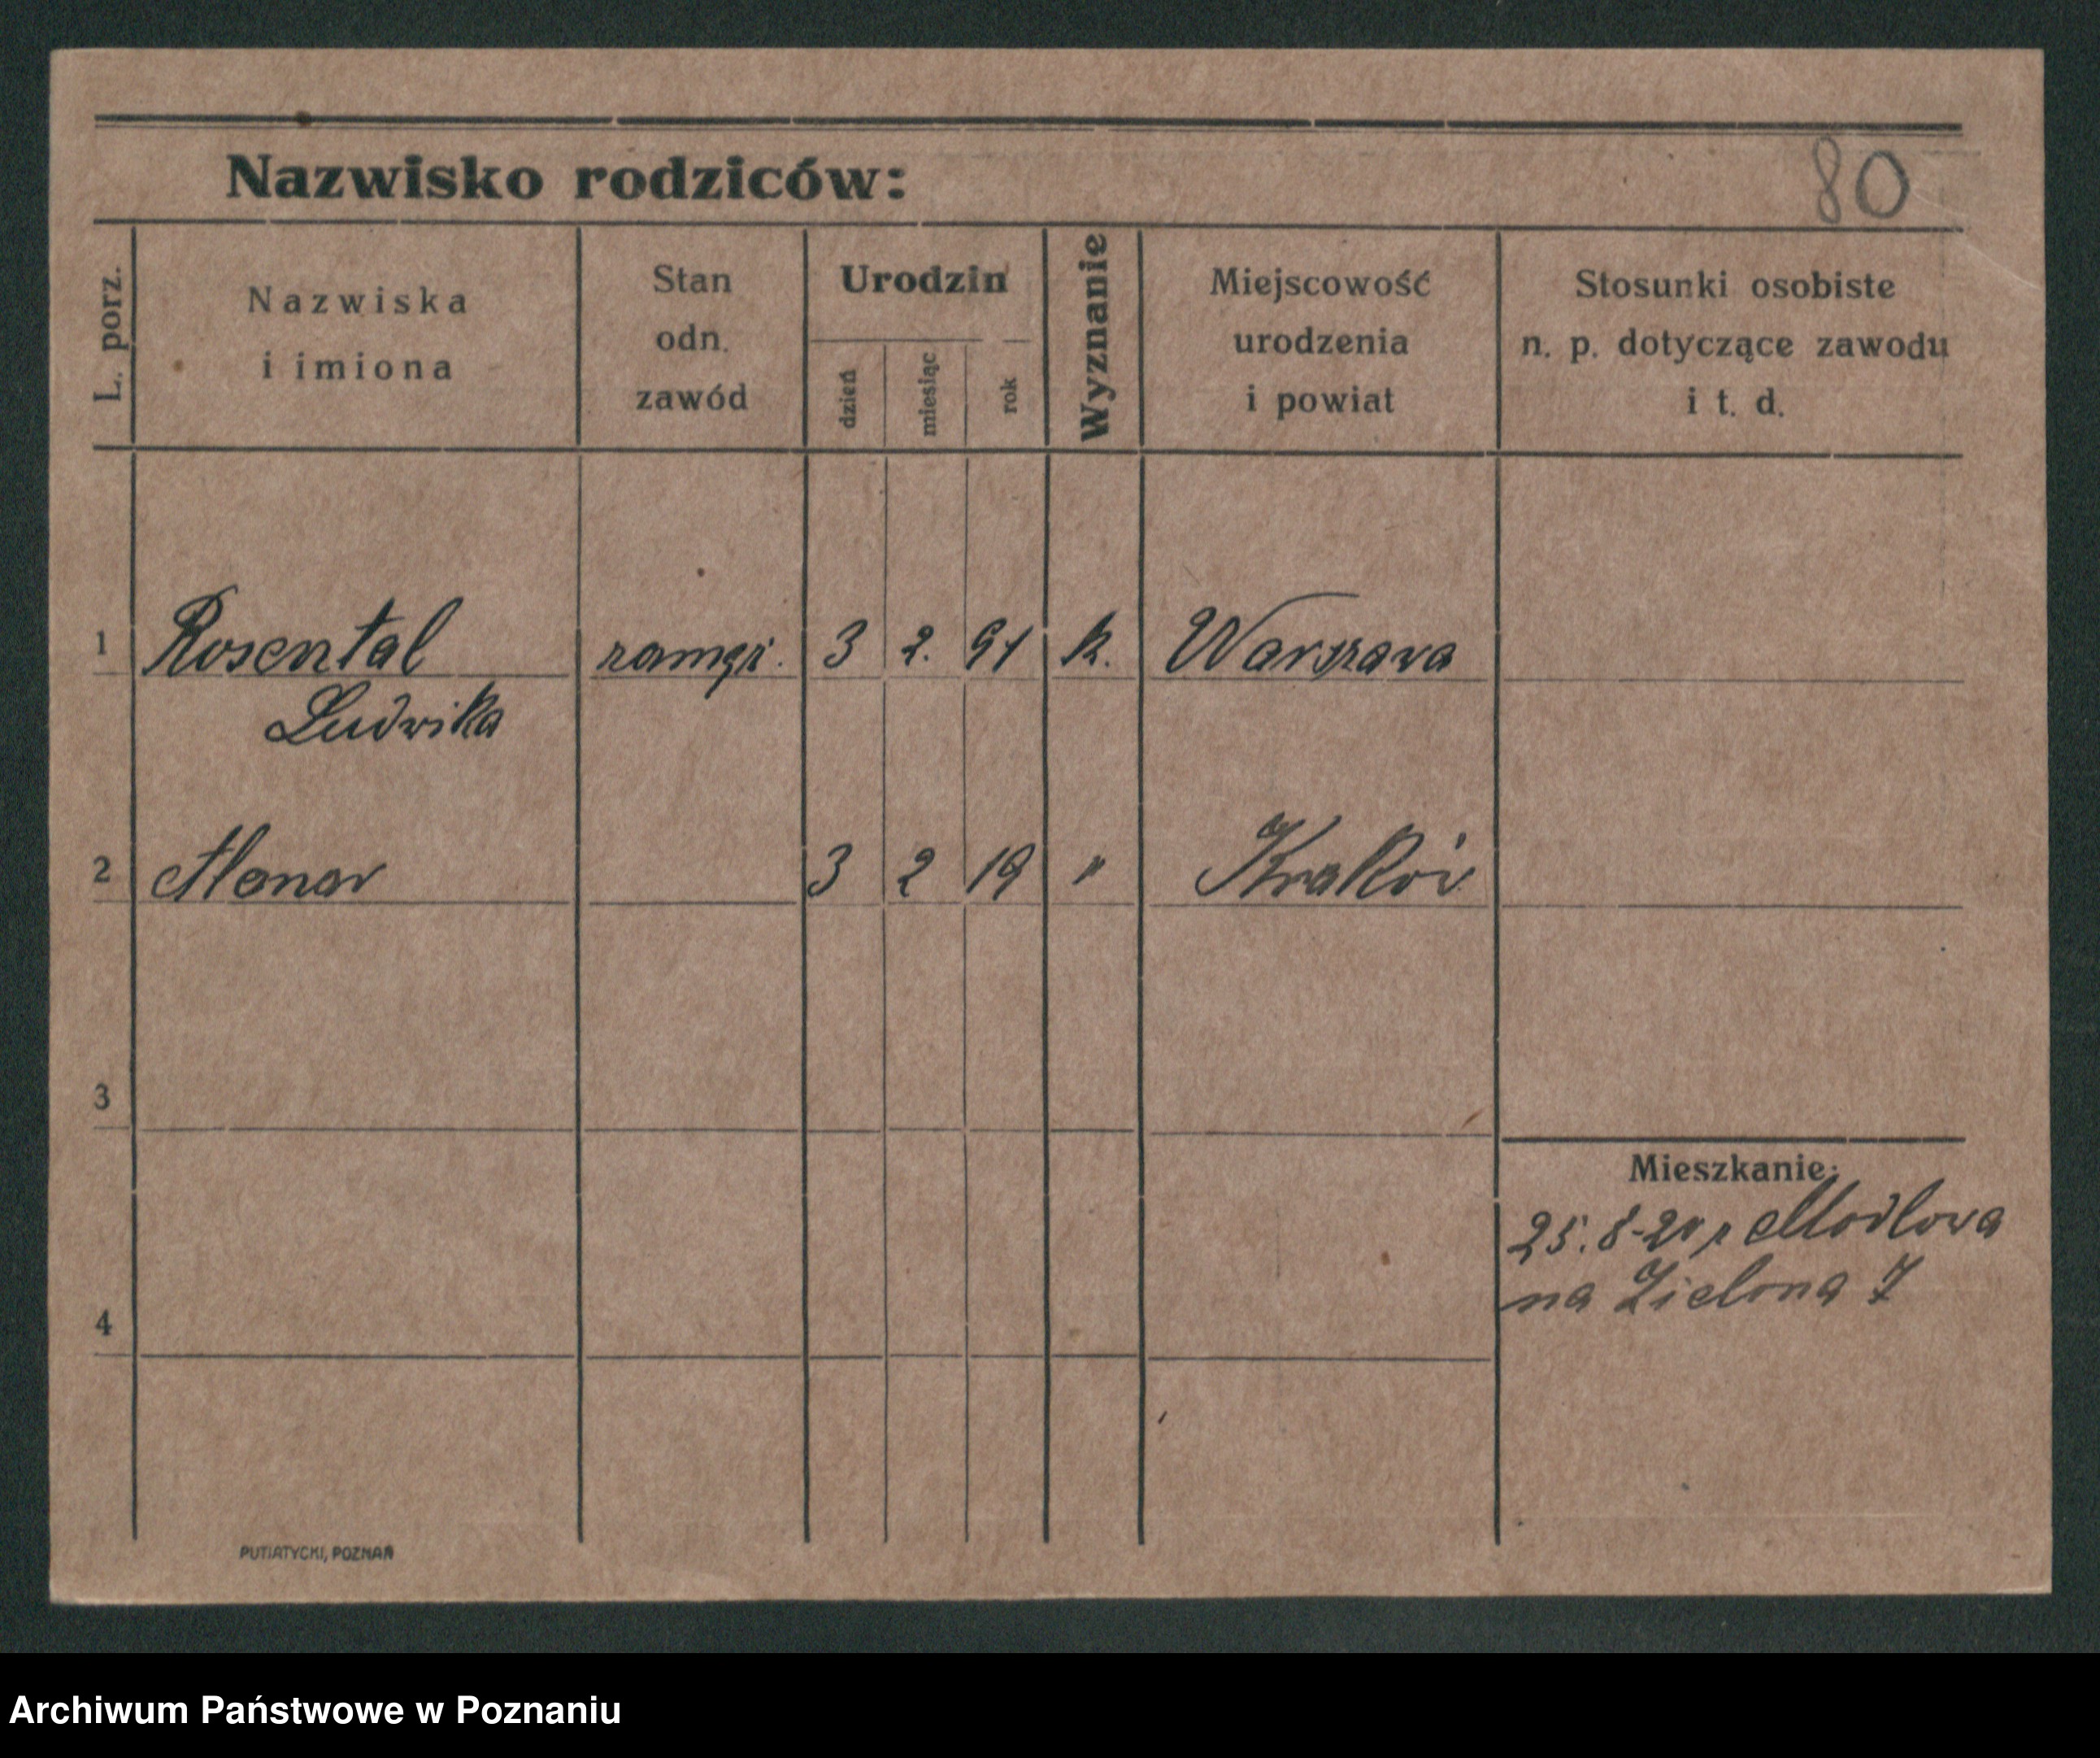 Nazwisko rodziców:
80
L. porz.
Nazwiska
i imiona
Stan
odn.
zawód
Urodzin
dzień
miesiąc
rok
Wyznanie
Miejscowość
urodzenia
i powiat
Stosunki osobiste
n. p. dotyczące zawodu
i t. d.
1 Rosental 3 2. 91 k. Warszawa
Ludwika
2 3 2 19 " Kraków
3
Mieszkanie:
25. 8-20 z Modlowa
na Zielona 7
4
PUTIATYCKI, POZNAŃ
Archiwum Państwowe w Poznaniu